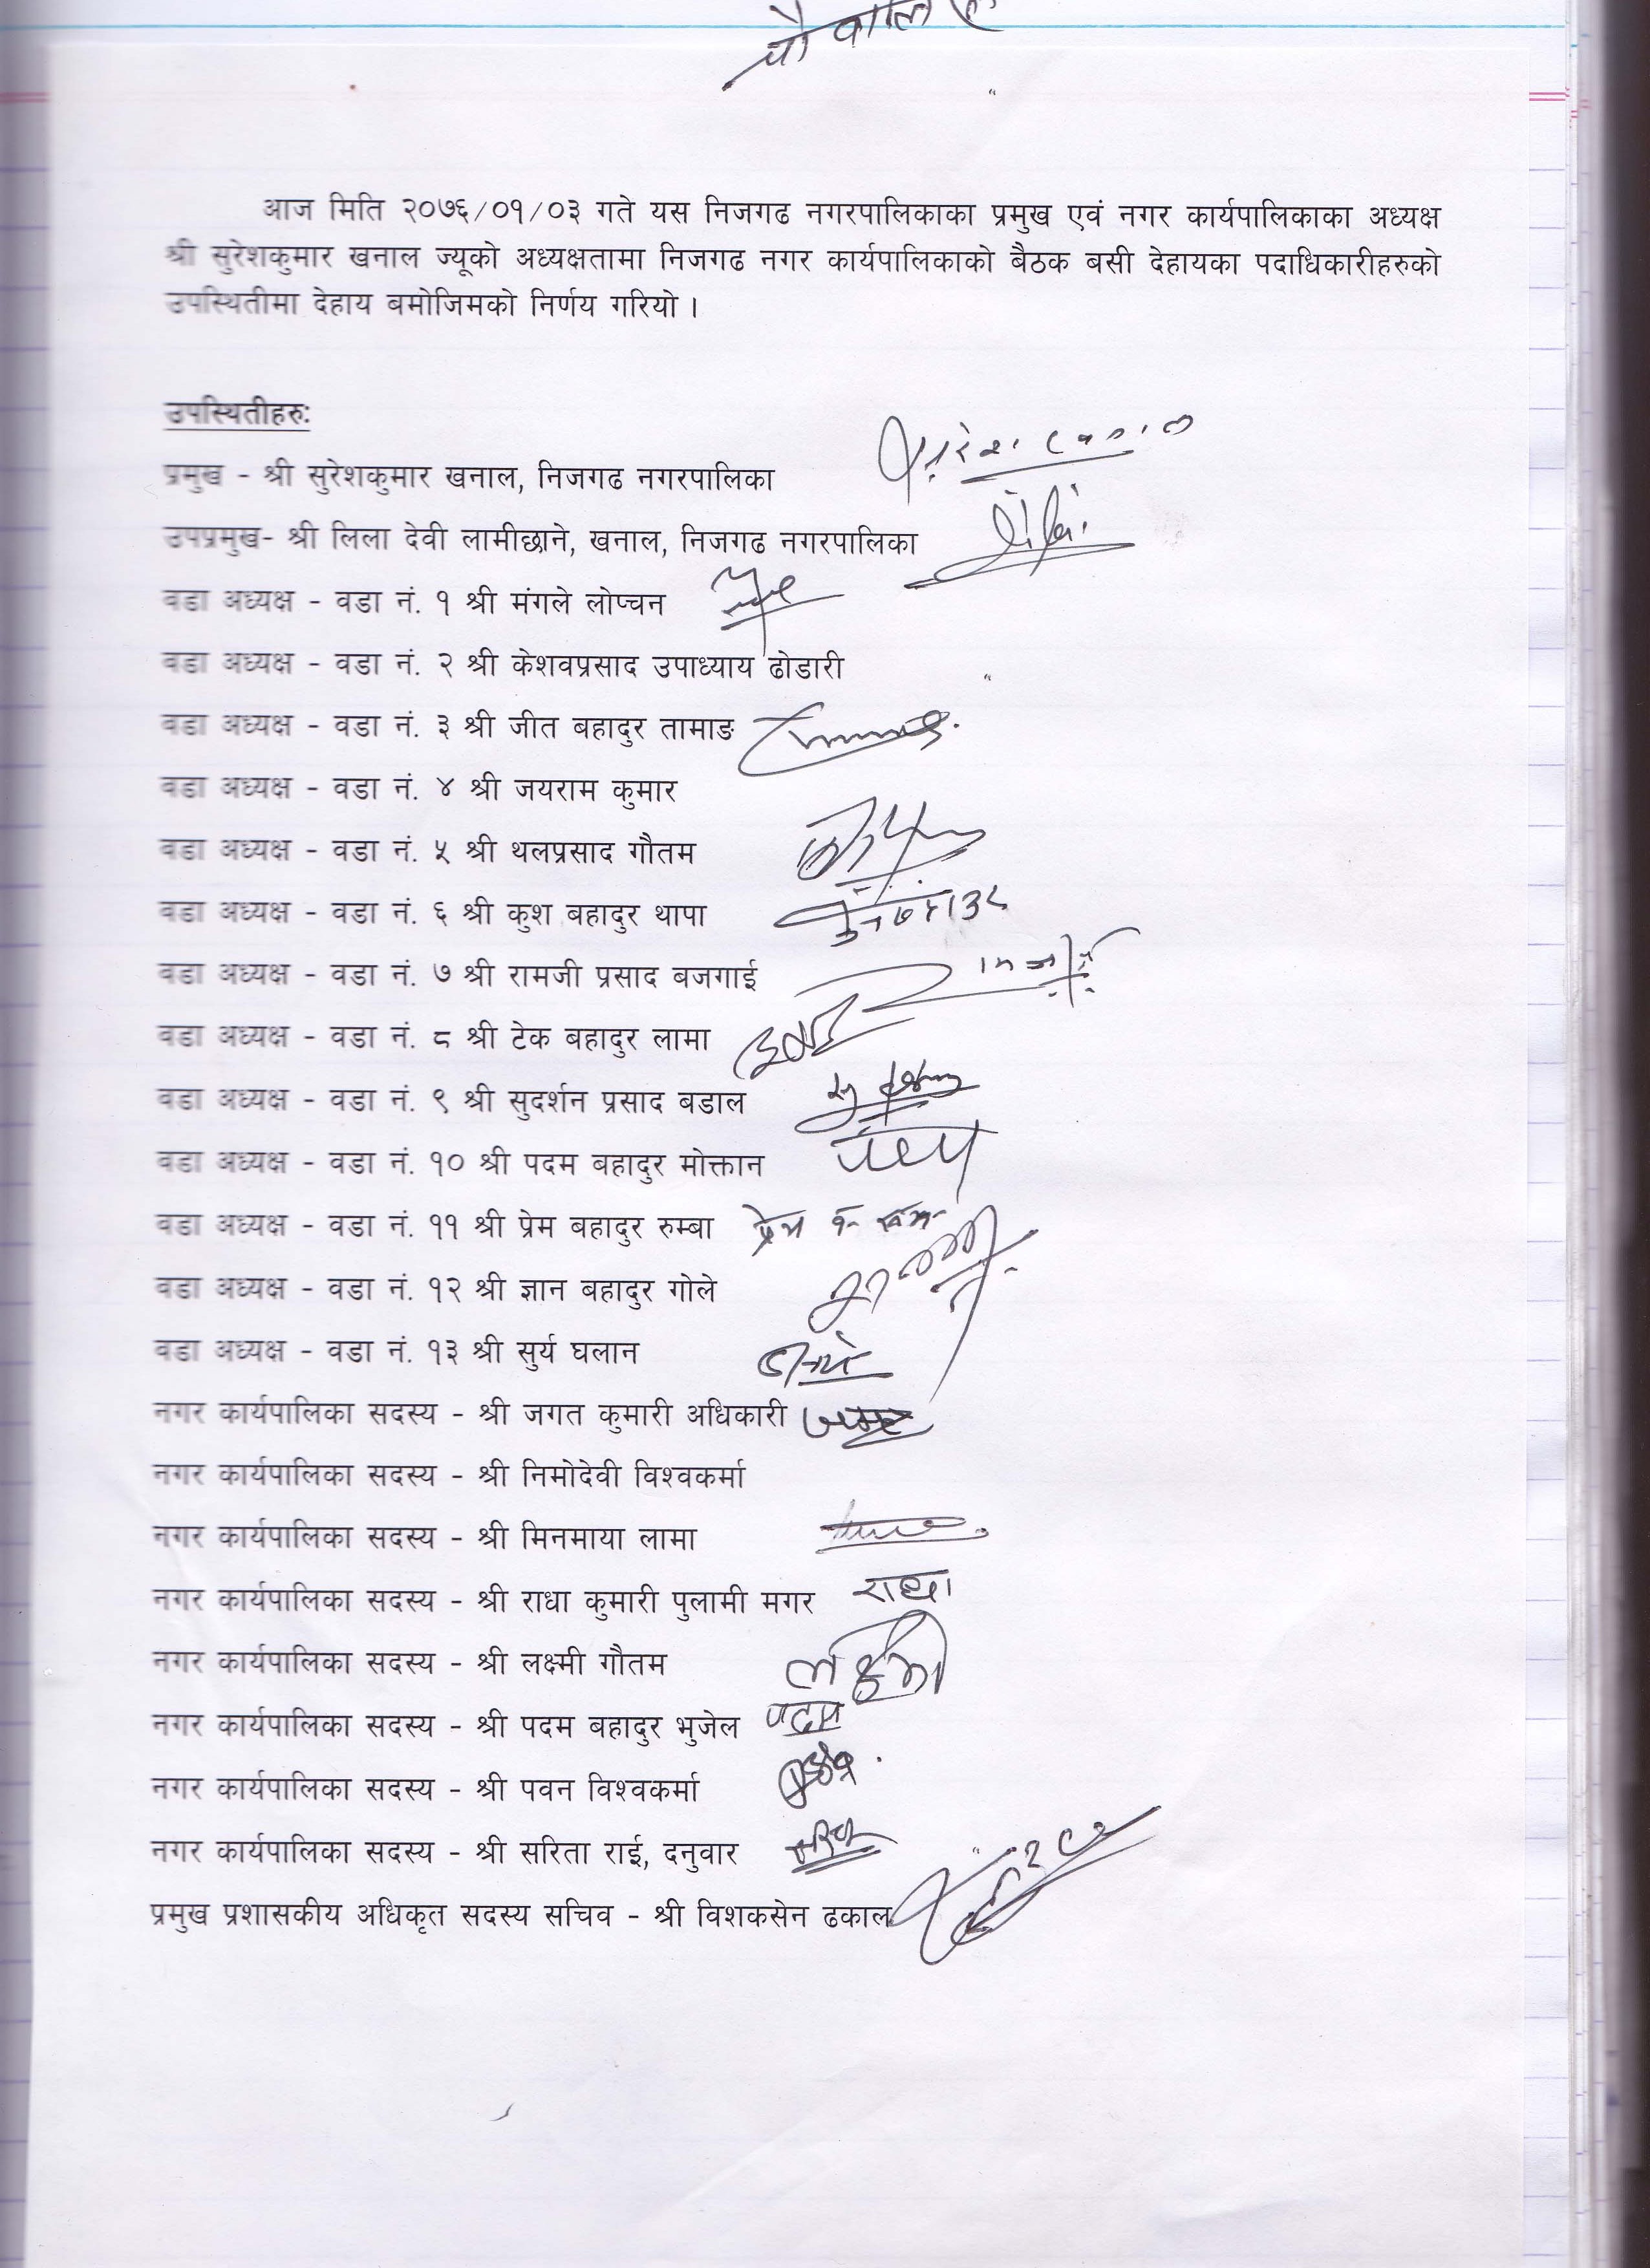 आज मिति २०७६/०१/०३ गते यस निजगढ नगरपालिकाका प्रमुख एवं नगर कार्यपालिकाका अध्यक्ष
श्री सुरेशकुमार खनाल ज्यूको अध्यक्षतामा निजगढ नगर कार्यपालिकाको बैठक बसी देहायका पदाधिकारीहरुको
उपस्थितीमा देहाय बमोजिमको निर्णय गरियो ।
उपस्थितीहरुः
प्रमुख - श्री सुरेशकुमार खनाल, निजगढ नगरपालिका
उपप्रमुख- श्री लिला देवी लामीछाने, खनाल, निजगढ नगरपालिका
वडा अध्यक्ष - वडा नं. १ श्री मंगले लोप्चन
वडा अध्यक्ष - वडा नं. २ श्री केशवप्रसाद उपाध्याय ढोडारी
वडा अध्यक्ष - वडा नं. ३ श्री जीत बहादुर तामाङ
वडा अध्यक्ष - वडा नं. ४ श्री जयराम कुमार
वडा अध्यक्ष - वडा नं. ५ श्री थलप्रसाद गौतम
वडा अध्यक्ष - वडा नं. ६ श्री कुश बहादुर थापा
वडा अध्यक्ष - वडा नं. ७ श्री रामजी प्रसाद बजगाई
वडा अध्यक्ष - वडा नं. ८ श्री टेक बहादुर लामा
वडा अध्यक्ष - वडा नं. ९ श्री सुदर्शन प्रसाद बडाल
वडा अध्यक्ष - वडा नं. १० श्री पदम बहादुर मोक्तान
वडा अध्यक्ष - वडा नं. ११ श्री प्रेम बहादुर रुम्बा प्रेम
वडा अध्यक्ष - वडा नं. १२ श्री ज्ञान बहादुर गोले
वडा अध्यक्ष - वडा नं. १३ श्री सुर्य घलान
नगर कार्यपालिका सदस्य - श्री जगत कुमारी अधिकारी
नगर कार्यपालिका सदस्य - श्री निमोदेवी विश्वकर्मा
नगर कार्यपालिका सदस्य - श्री मिनमाया लामा
नगर कार्यपालिका सदस्य - श्री राधा कुमारी पुलामी मगर राधा
नगर कार्यपालिका सदस्य - श्री लक्ष्मी गौतम लक्ष्मी
नगर कार्यपालिका सदस्य - श्री पदम बहादुर भुजेल पदम
नगर कार्यपालिका सदस्य - श्री पवन विश्वकर्मा
नगर कार्यपालिका सदस्य - श्री सरिता राई, दनुवार
प्रमुख प्रशासकीय अधिकृत सदस्य सचिव - श्री विशकसेन ढकाल